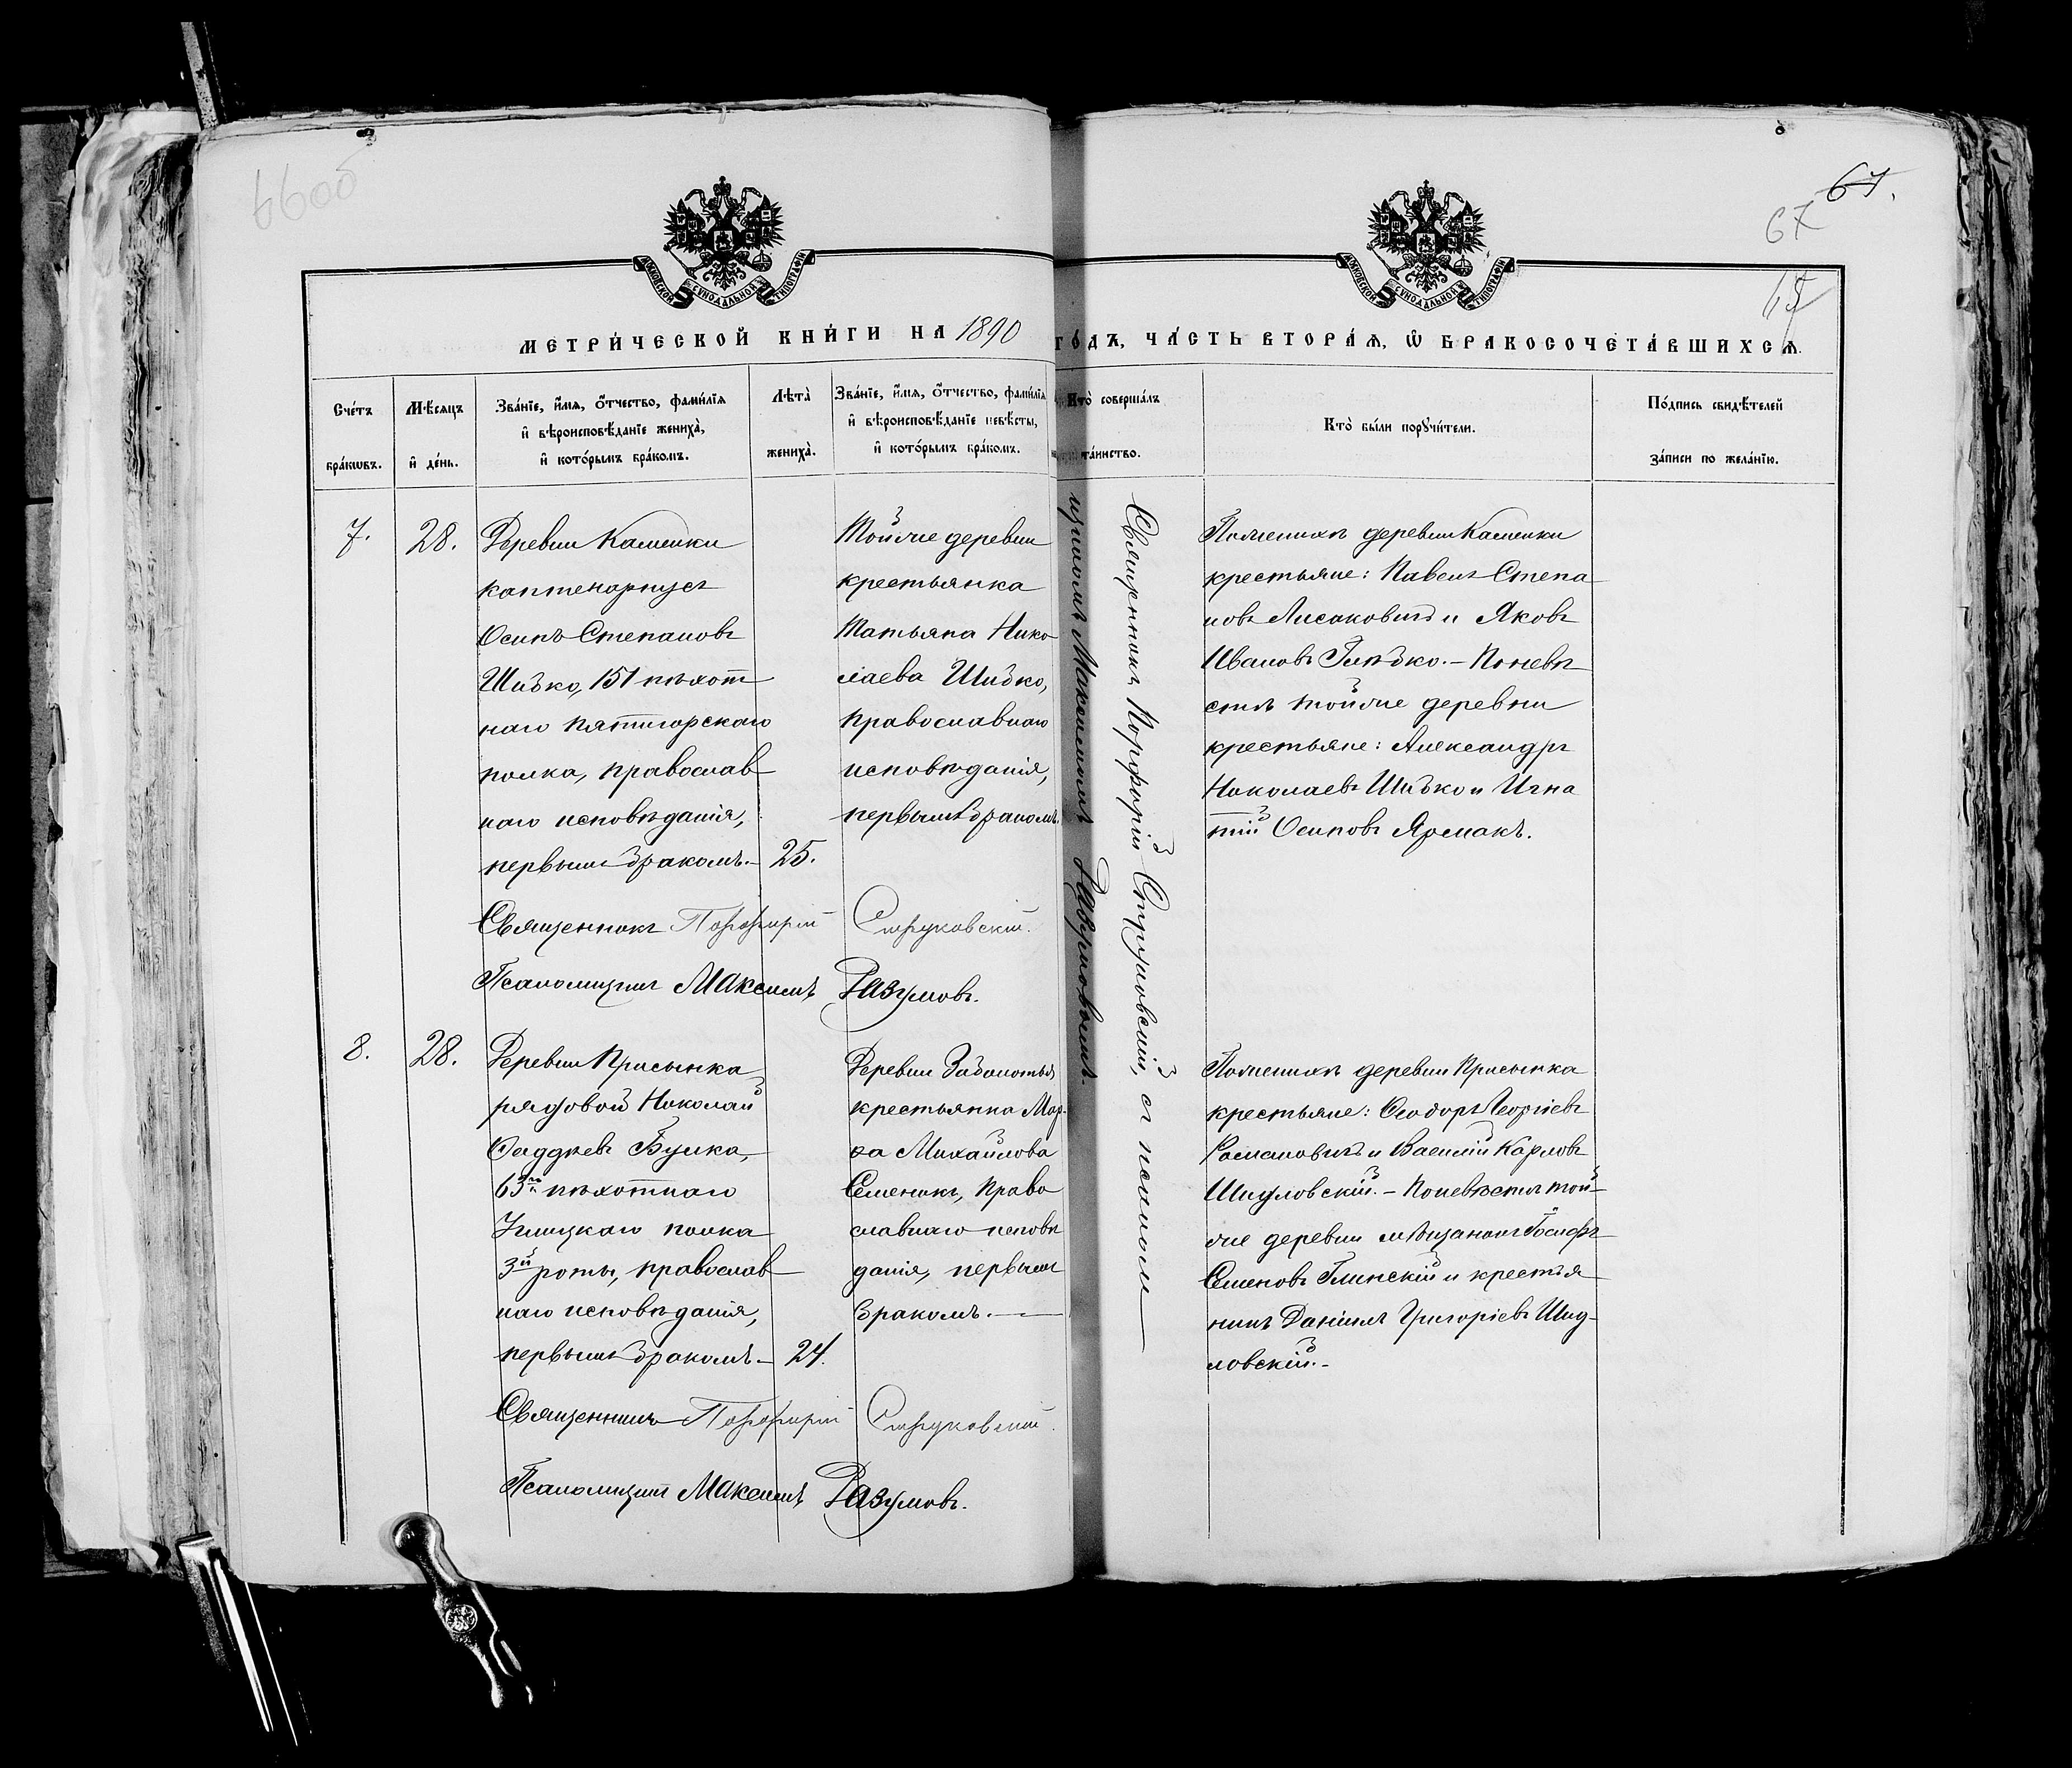 66 об
67.
67
МОСКОВСКОЙ СѴНОДАЛЬНОЙ ТИПОГРАФІИ
МОСКОВСКОЙ СѴНОДАЛЬНОЙ ТИПОГРАФІИ
МЕТРИ́ЧЕСКОЙ КНИ́ГИ НА 1890 ГО́ДЪ, ЧА́СТЬ ВТОРА́Ѧ, Ѽ БРАКОСОЧЕТА́ВШИХСѦ.
Сче́тъ бра́кѡвъ.
Мѣ́сѧцъ и҆ де́нь.
Зва́нїе, и҆́мѧ, ѻ҆́тчество, фами́лїѧ
и҆ вѣроисповѣ́данїе жениха̀,
и҆ кото́рымъ бра́комъ.
Лѣта̀ жениха̀.
Зва́нїе, и҆́мѧ, ѻ҆́тчество, фами́лїѧ
и҆ вѣроисповѣ́данїе невѣ́сты,
и҆ кото́рымъ бра́комъ.
Кто̀ соверша́лъ
та́инство.
Кто̀ бы́ли порꙋчи́тели.
По́дпись свидѣ́телей
за́писи по жела́нїю.
7.
28.
Деревни Каменки
каптенармусъ
Осипъ Степановъ
Шибко, 151 пѣхот
наго пятигорскаго
полка, православ
наго исповѣданія,
первымъ бракомъ. –
25.
Тойже деревни
крестьянка
Татьяна Нико
лаева Шибко,
православнаго
исповѣданія,
первымъ бракомъ.
Священникъ Порфирій Струковскій, съ псалом
щикомъ Максимомъ Разумовымъ.
По женихѣ деревни Каменки
крестьяне: Павелъ Степа
новъ Лисаковичъ и Яковъ
Ивановъ Глѣбко. – По невѣ
стѣ тойже деревни
крестьяне: Александръ
Николаевъ Шибко и Игна
тій Осиповъ Ярмакъ.
Священникъ Порфирій Струковскій.
Псаломщикъ Максимъ Разумовъ.
8.
28.
Деревни Присынка
рядовой Николай
Ѳаддеевъ Бушка,
63го пѣхотнаго
Углицкаго полка
3й роты, православ
наго исповѣданія,
первымъ бракомъ. –
24.
Деревни Заболотья
крестьянка Мар
ѳа Михайлова
Семеникъ, право
славнаго исповѣ
данія, первымъ
бракомъ. –
По женихѣ деревни Присынка
крестьяне: Ѳеодоръ Георгіевъ
Романовичъ и Василій Карловъ
Шидловскій. – По невѣстѣ той
же деревни мѣщанинъ Іосифъ
Семеновъ Глинскій и крестья
нинъ Даніилъ Григоріевъ Шид-
ловскій. –
Священникъ Порфирій Струковскій.
Псаломщикъ Максимъ Разумовъ.